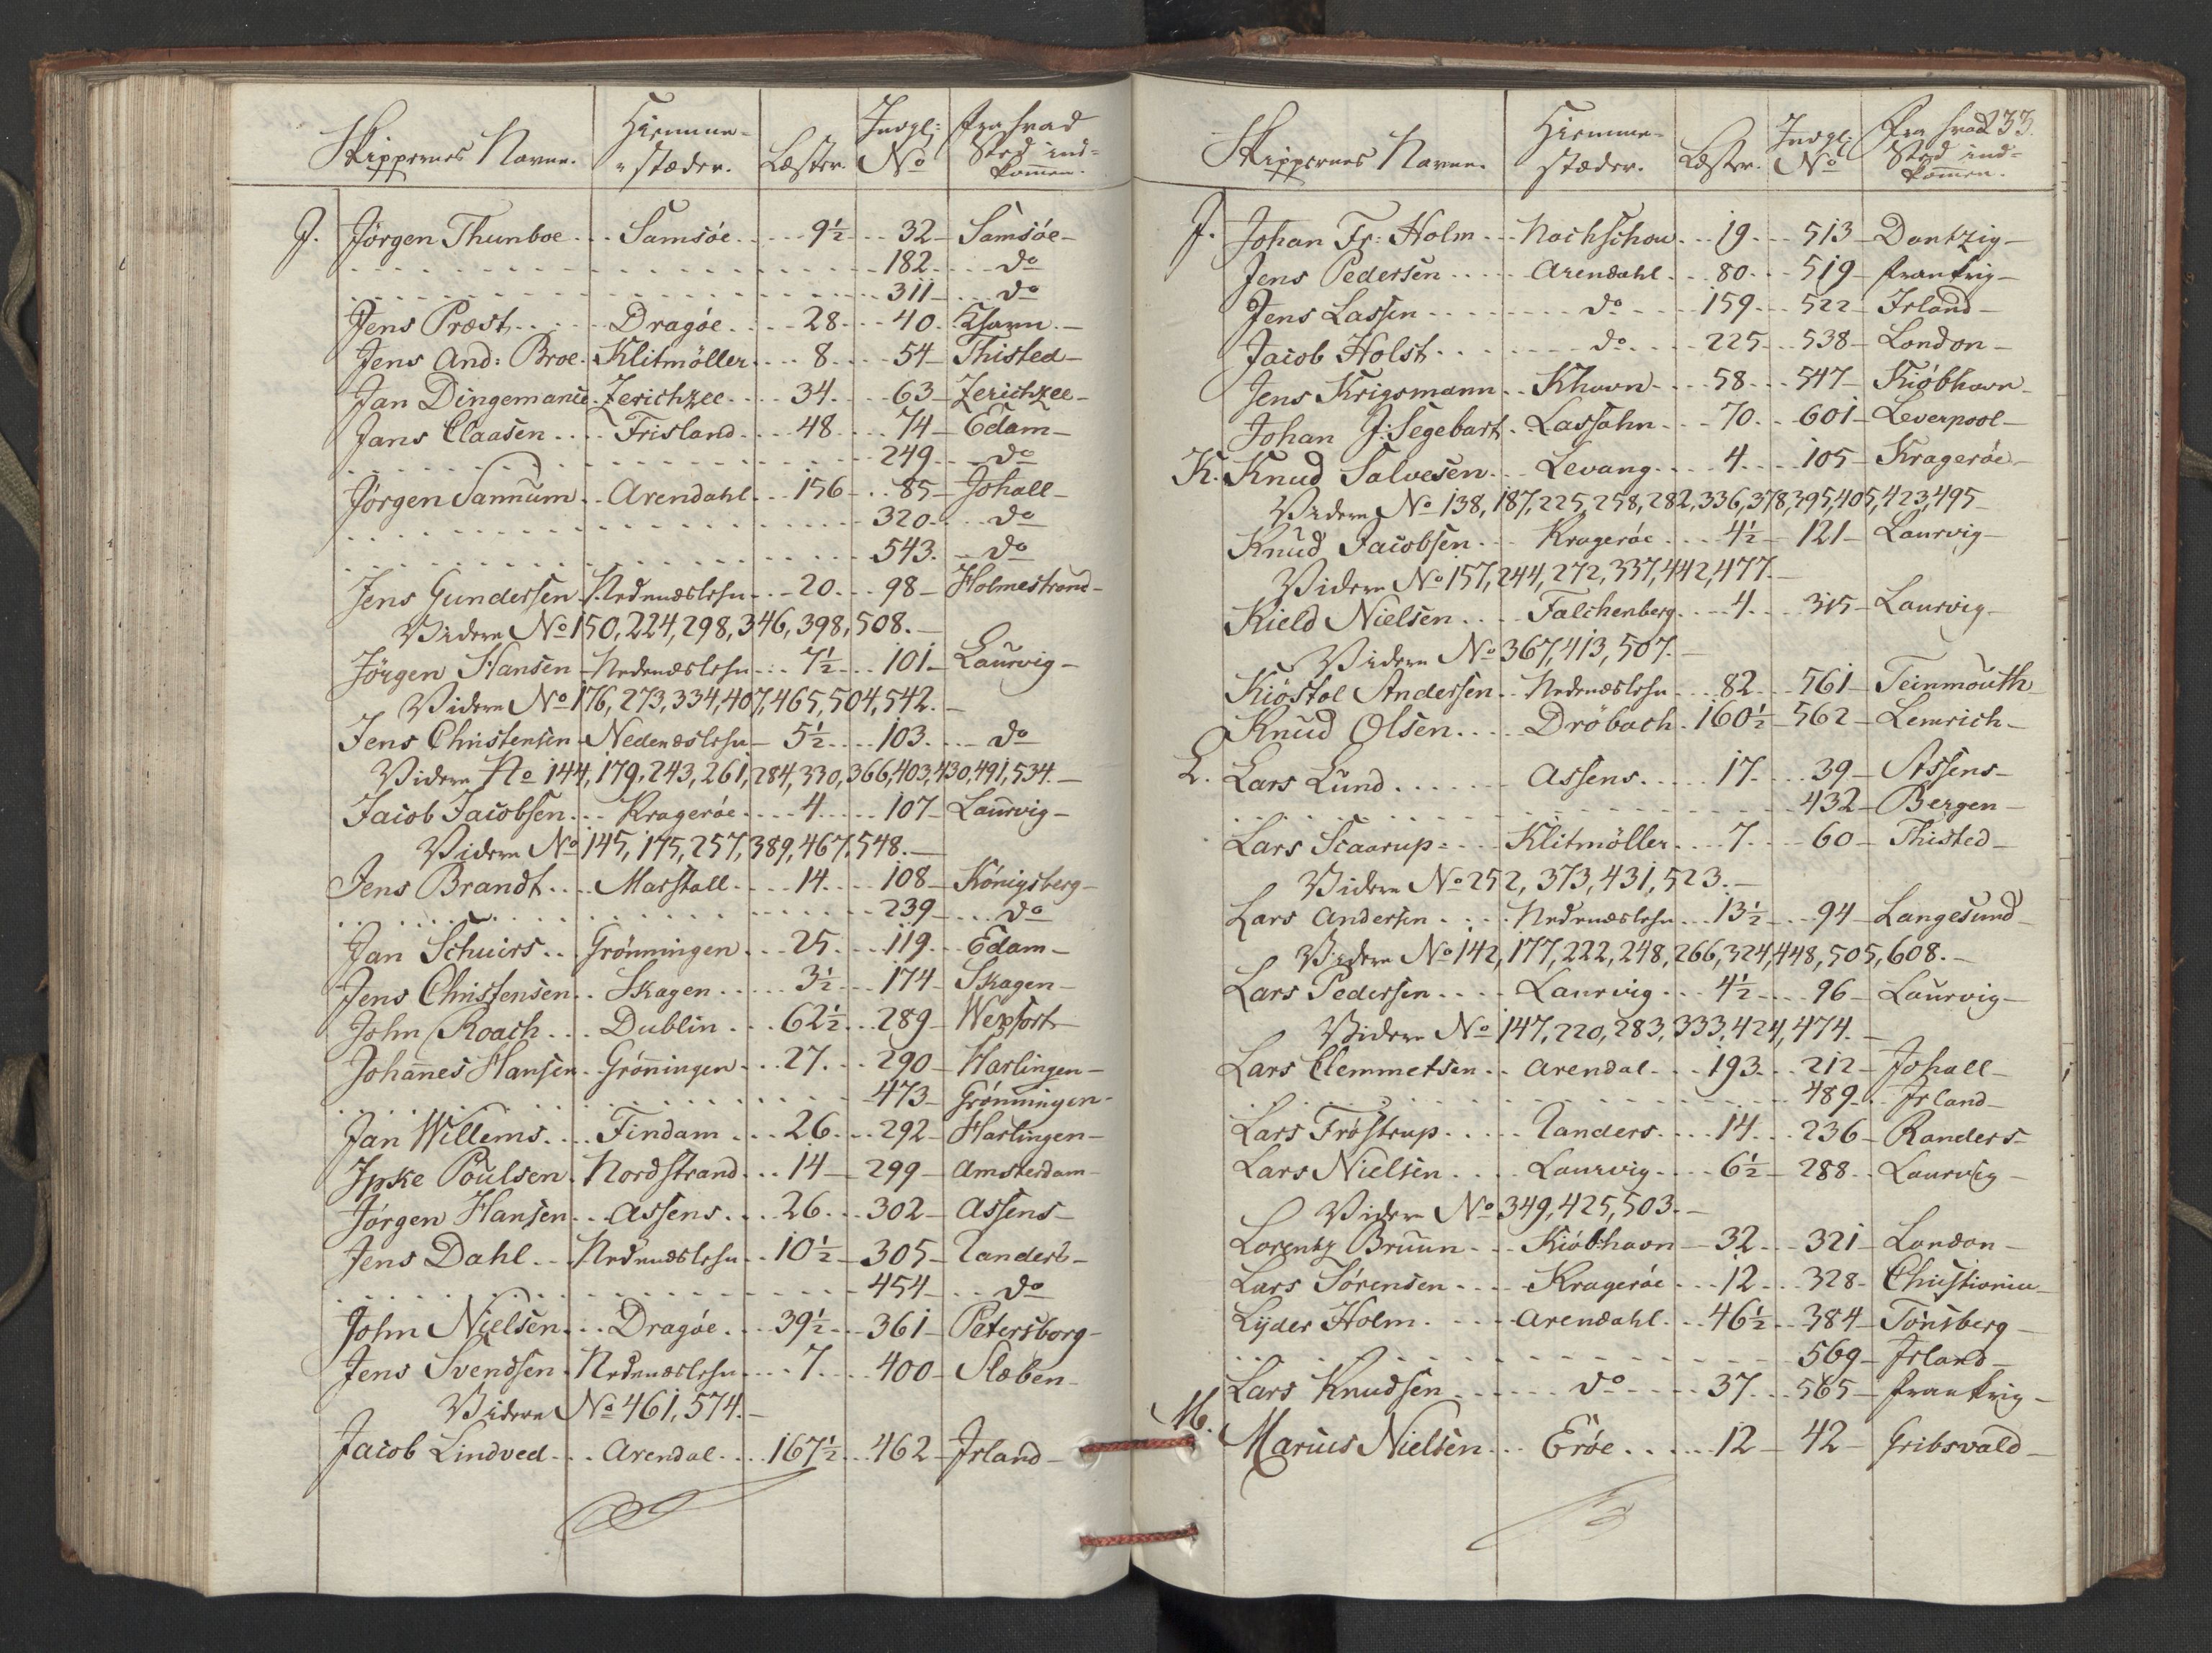 Skippernes Navne. Hiemme-stæder. Læster. Indgl: No Fra hvad Sted ind-kommen.
J. Jörgen Thunboe Samsöe 9½ 32 Samsöe
182 do
311 do
Jens Præst Dragöe 28 40 Khavn
Jens And: Broe Klitmöller 8 54 Thisted
Jan Dingemanse Zerichzee 34 63 Zerichzee
Jans Claasen Frisland 48 74 Edam
249 do
Jörgen Sannum Arendahl 156 85 Johall
320 do
543 do
Jens Gundersen Nedenæslehn 20 98 Holmestrand
Videre No 150, 224, 298, 346, 398, 508.
Jörgen Hansen Nedenæslehn 7½ 101 Laurvig
Videre No 176, 273, 334, 407, 465, 504, 542.
Jens Christensen Nedenæslehn 5½ 103 do
Videre No 144, 179, 243, 261, 284, 330, 366, 403, 430, 491, 534.
Jacob Jacobsen Kragerøe 4 107 Laurvig
Videre No 145, 175, 257, 389, 467, 548.
Jens Brandt Marstall 14 108 Königsberg
239 do
Jan Schuirs Grönningen 25 119 Edam
Jens Christensen Skagen 3½ 174 Skagen
John Roach Dublin 62½ 289 Wexfort
Johannes Hansen Grönningen 27 290 Harlingen
473 Grönningen
Jan Willems Findam 26 292 Harlingen
Ipke Poulsen Nordstrand 14 299 Amsterdam
Jörgen Hansen Assens 26 302 Assens
Jens Dahl Nedenæslehn 10½ 305 Randers
454 do
John Nielsen Dragöe 39½ 361 Petersborg
Jens Svendsen Nedenæslehn 7 400 Slæben
Videre No 461, 574.
Jacob Lindved Arendal 167½ 462 Irland
233.
Skippernes Navne. Hiemme-stæder. Læster. Indgl: No Fra hvad Sted ind-kommen.
J. Johan Fr: Holm Nachschou 19 513 Dantzig
Jens Pedersen Arendahl 80 519 Frankrig
Jens Lassen do 159 522 Irland
Jacob Holst do 225 538 London
Jens Krigsmann Khavn 58 547 Kiöbhavn
Johan J: Segebart Lassahn 70 601 Leverpool
K. Knud Salvesen Levang 4 105 Kragerøe
Videre No 138, 187, 225, 258, 282, 336, 378, 395, 405, 423, 495
Knud Jacobsen Kragerøe 4½ 121 Laurvig
Videre No 157, 244, 272, 337, 442, 477.
Kield Nielsen Falchenberg 4 315 Laurvig
Videre No 367, 413, 507.
Kiöstol Andersen Nedenæslehn 82 561 Teinmouth
Knud Olsen Dröbach 160½ 562 Lemrich
L. Lars Lund Assens 17 39 Assens
432 Bergen
Lars Scaarup Klitmöller 7 60 Thisted
Videre No 252, 373, 431, 523.
Lars Andersen Nedenæslehn 13½ 94 Langesund
Videre No 142, 177, 222, 248, 266, 324, 448, 505, 608.
Lars Pedersen Laurvig 4½ 96 Laurvig
Videre No 147, 220, 283, 333, 424, 474.
Lars Clemmetsen Arendal 193 212 Johall
489 Irland
Lars Fröstrup Randers 14 236 Randers
Lars Nielsen Laurvig 6½ 288 Laurvig
Videre No 349, 425, 503.
Lorentz Bruun Kiöbhavn 32 321 London
Lars Sörensen Kragerøe 12 328 Christiania
Lyder Holm Arendahl 46½ 384 Tönsberg
569 Irland
Lars Knudsen do 37 565 Frankrig
M. Marius Nielsen Eröe 12 42 Gribsvald